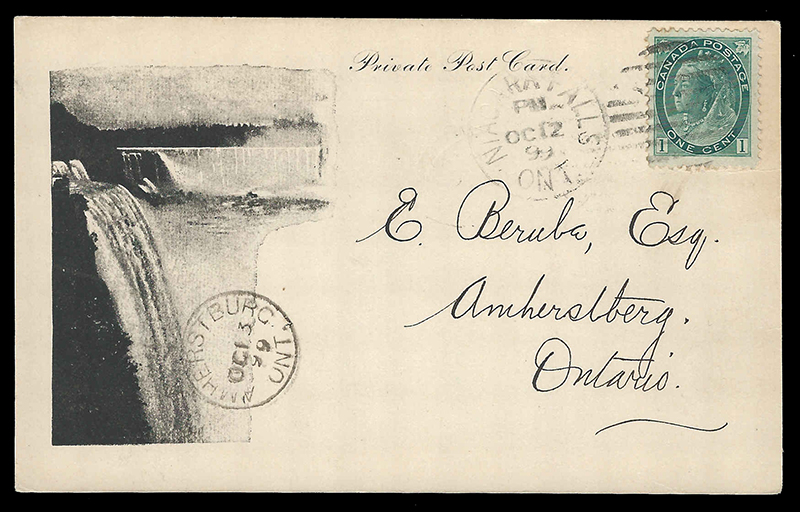 Private Post Card.
NIAGARA FALLS
PM
OC 12
99
ONT.
CANADA POSTAGE
1 ONE CENT 1
E. Beruba, Esq.
Amherstberg.
Ontario.
AMHERSTBURG. ONT.
OC 13
99